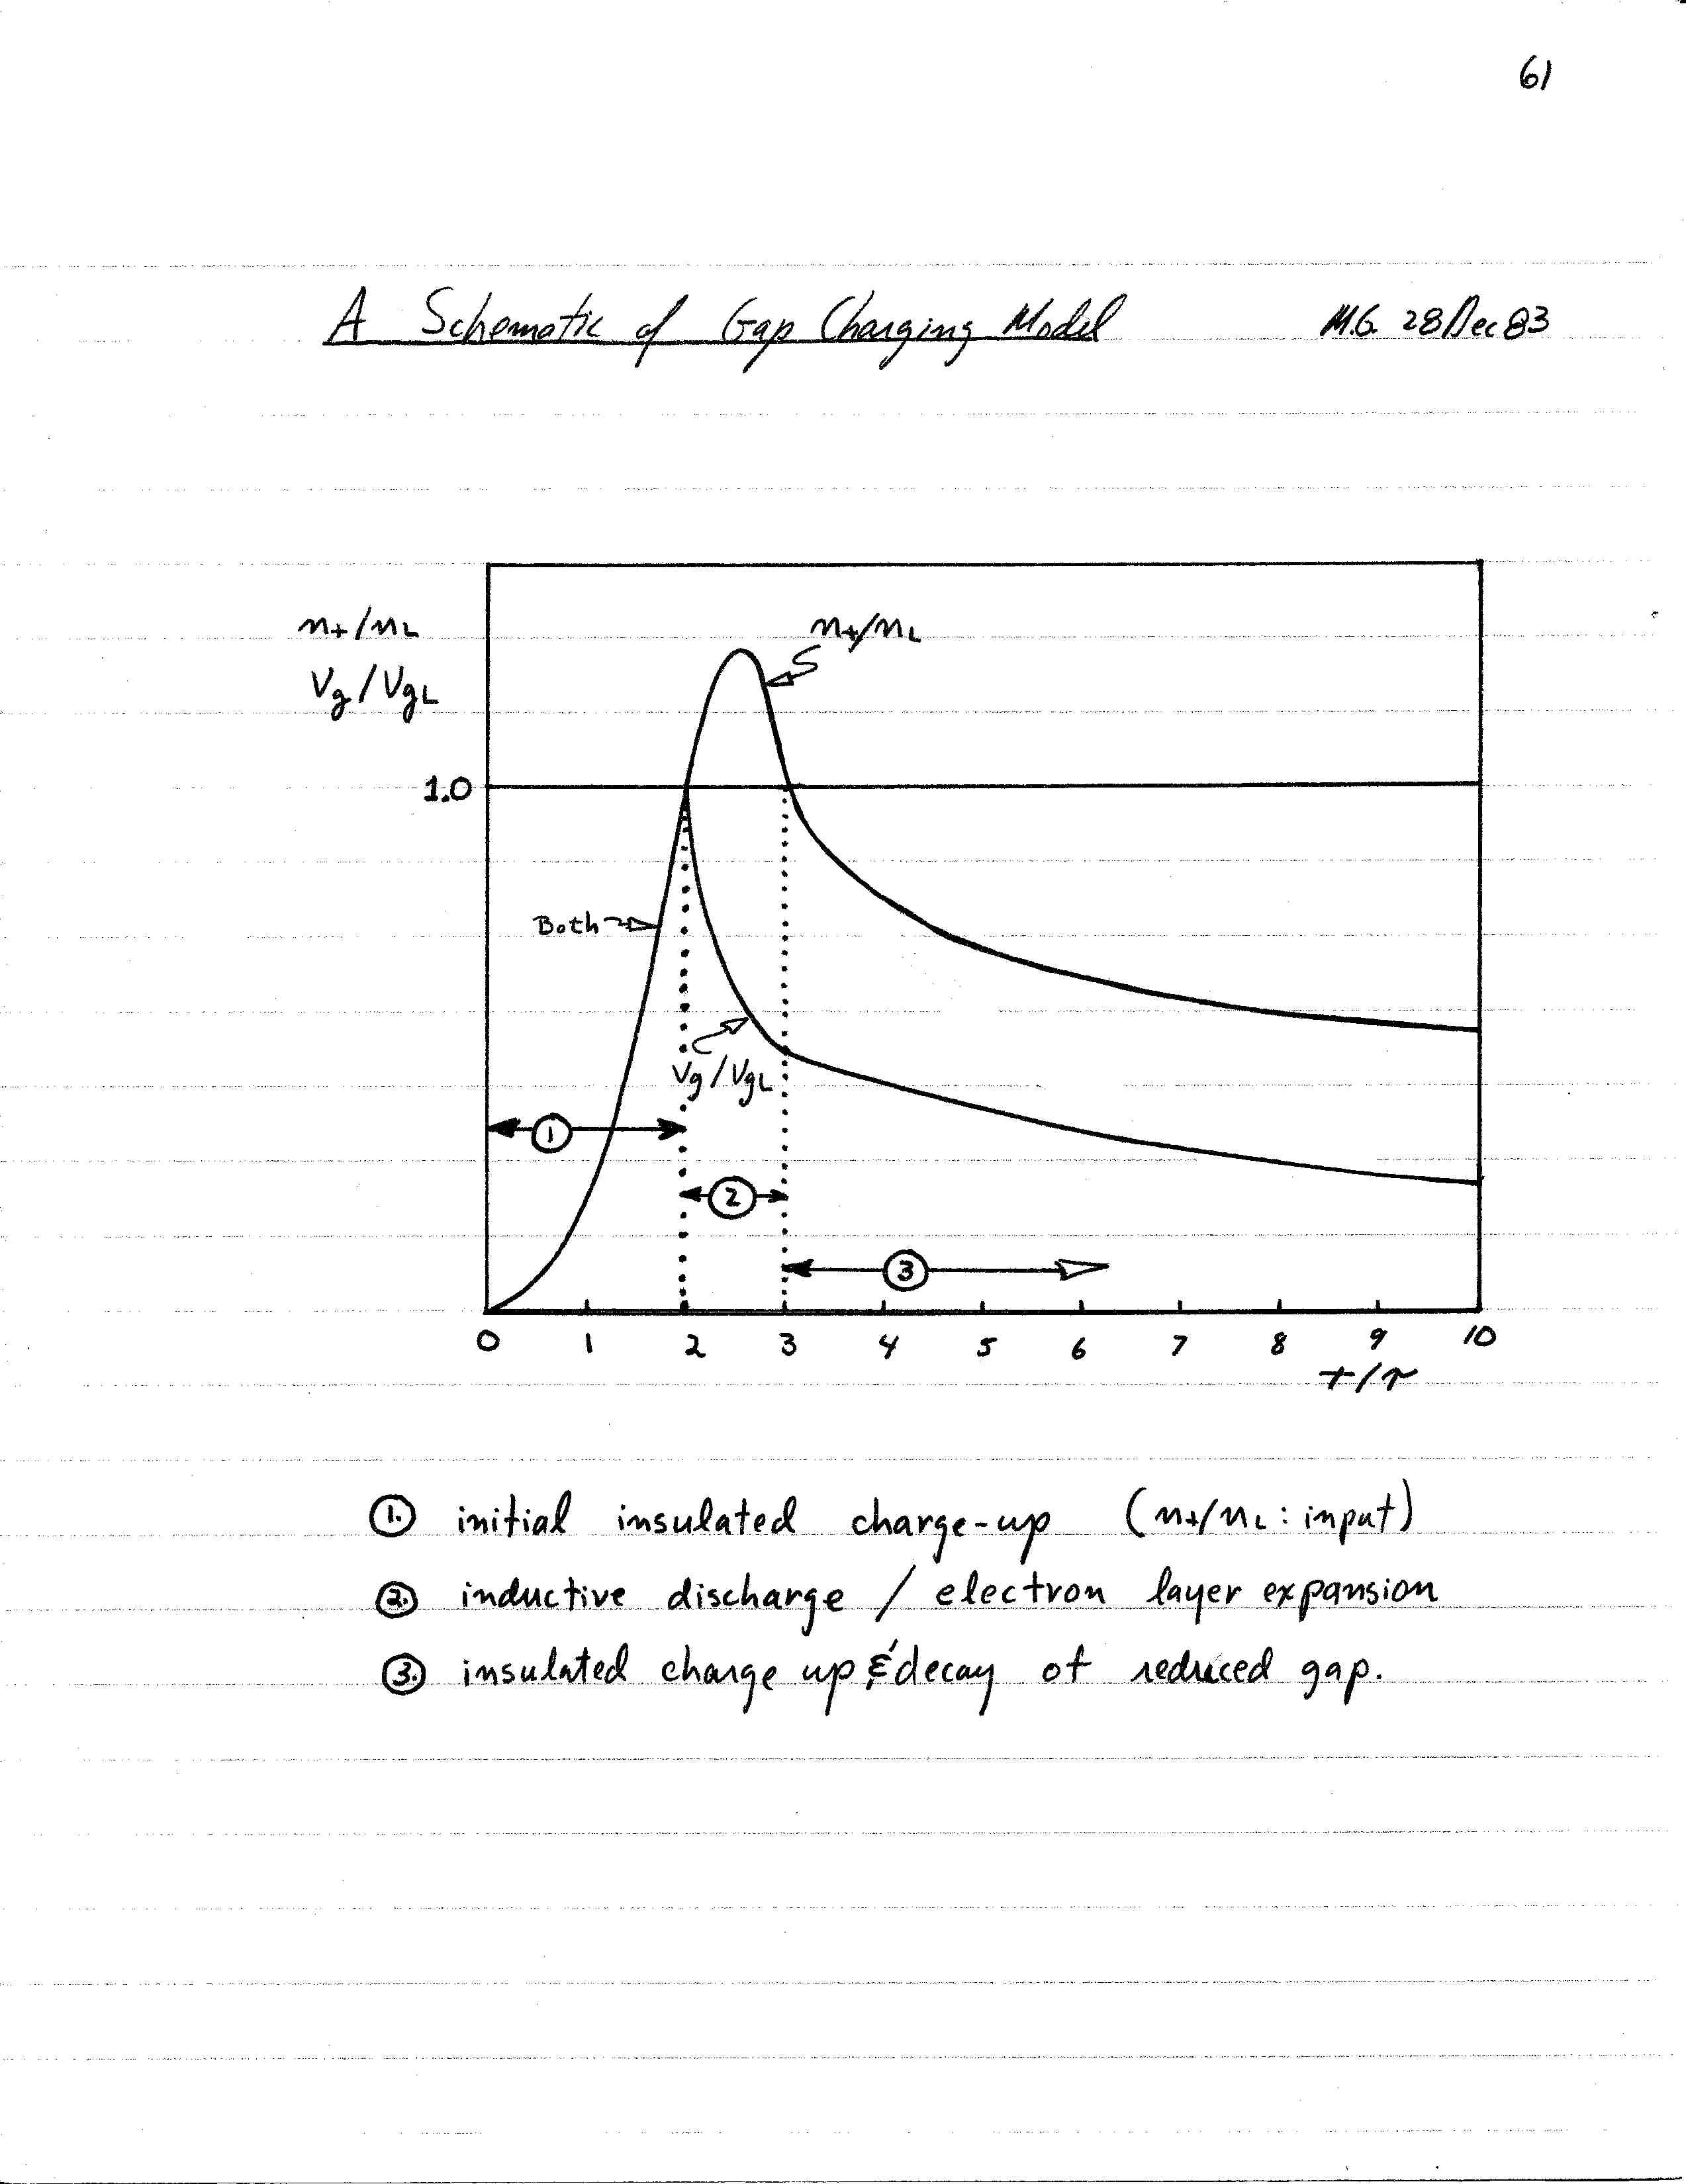 61
A Schematic of Gap Charging Model M.G. 28 Dec 83
n+/nL
Vg/VgL
n+/nL
1.0
Both
Vg/VgL
1
2
3
0 1 2 3 4 5 6 7 8 9 10
t/τ
①. initial insulated charge-up (n+/nL : input)
②. inductive discharge / electron layer expansion
③. insulated charge up & decay of reduced gap.